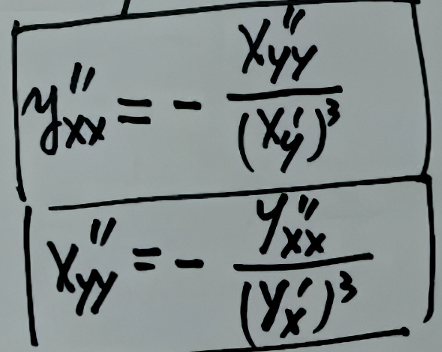 y''xx = - x''yy / (x'y)³
x''yy = - y''xx / (y'x)³